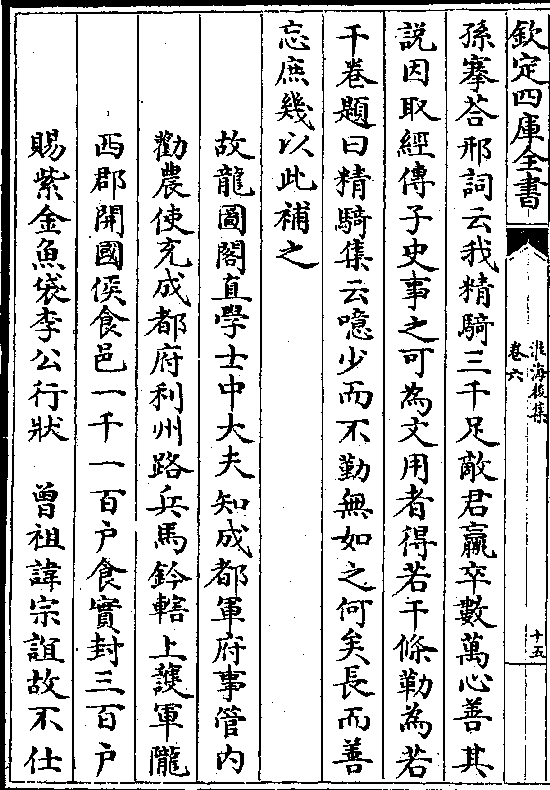 欽定四庫全書
淮海後集
卷六
十五
孫搴荅邢詞云我精騎三千足敵君羸卒數萬心善其
説因取經傳子史事之可為文用者得若干條勒為若
干卷題曰精騎集云噫少而不勤無如之何矣長而善
忘庶幾以此補之
故龍圖閣直學士中大夫知成都軍府事管内
勸農使充成都府利州路兵馬鈐轄上護軍隴
西郡開國侯食邑一千一百户食實封三百户
賜紫金魚袋李公行狀　曾祖諱宗誼故不仕